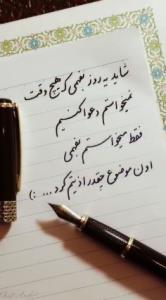 شاید یه روز بفهمی که هیچ وقت
نمیخواستم دعوا کنیم
فقط میخواستم بفهمی
اون موضوع چقدر اذیتم کرد ... :)